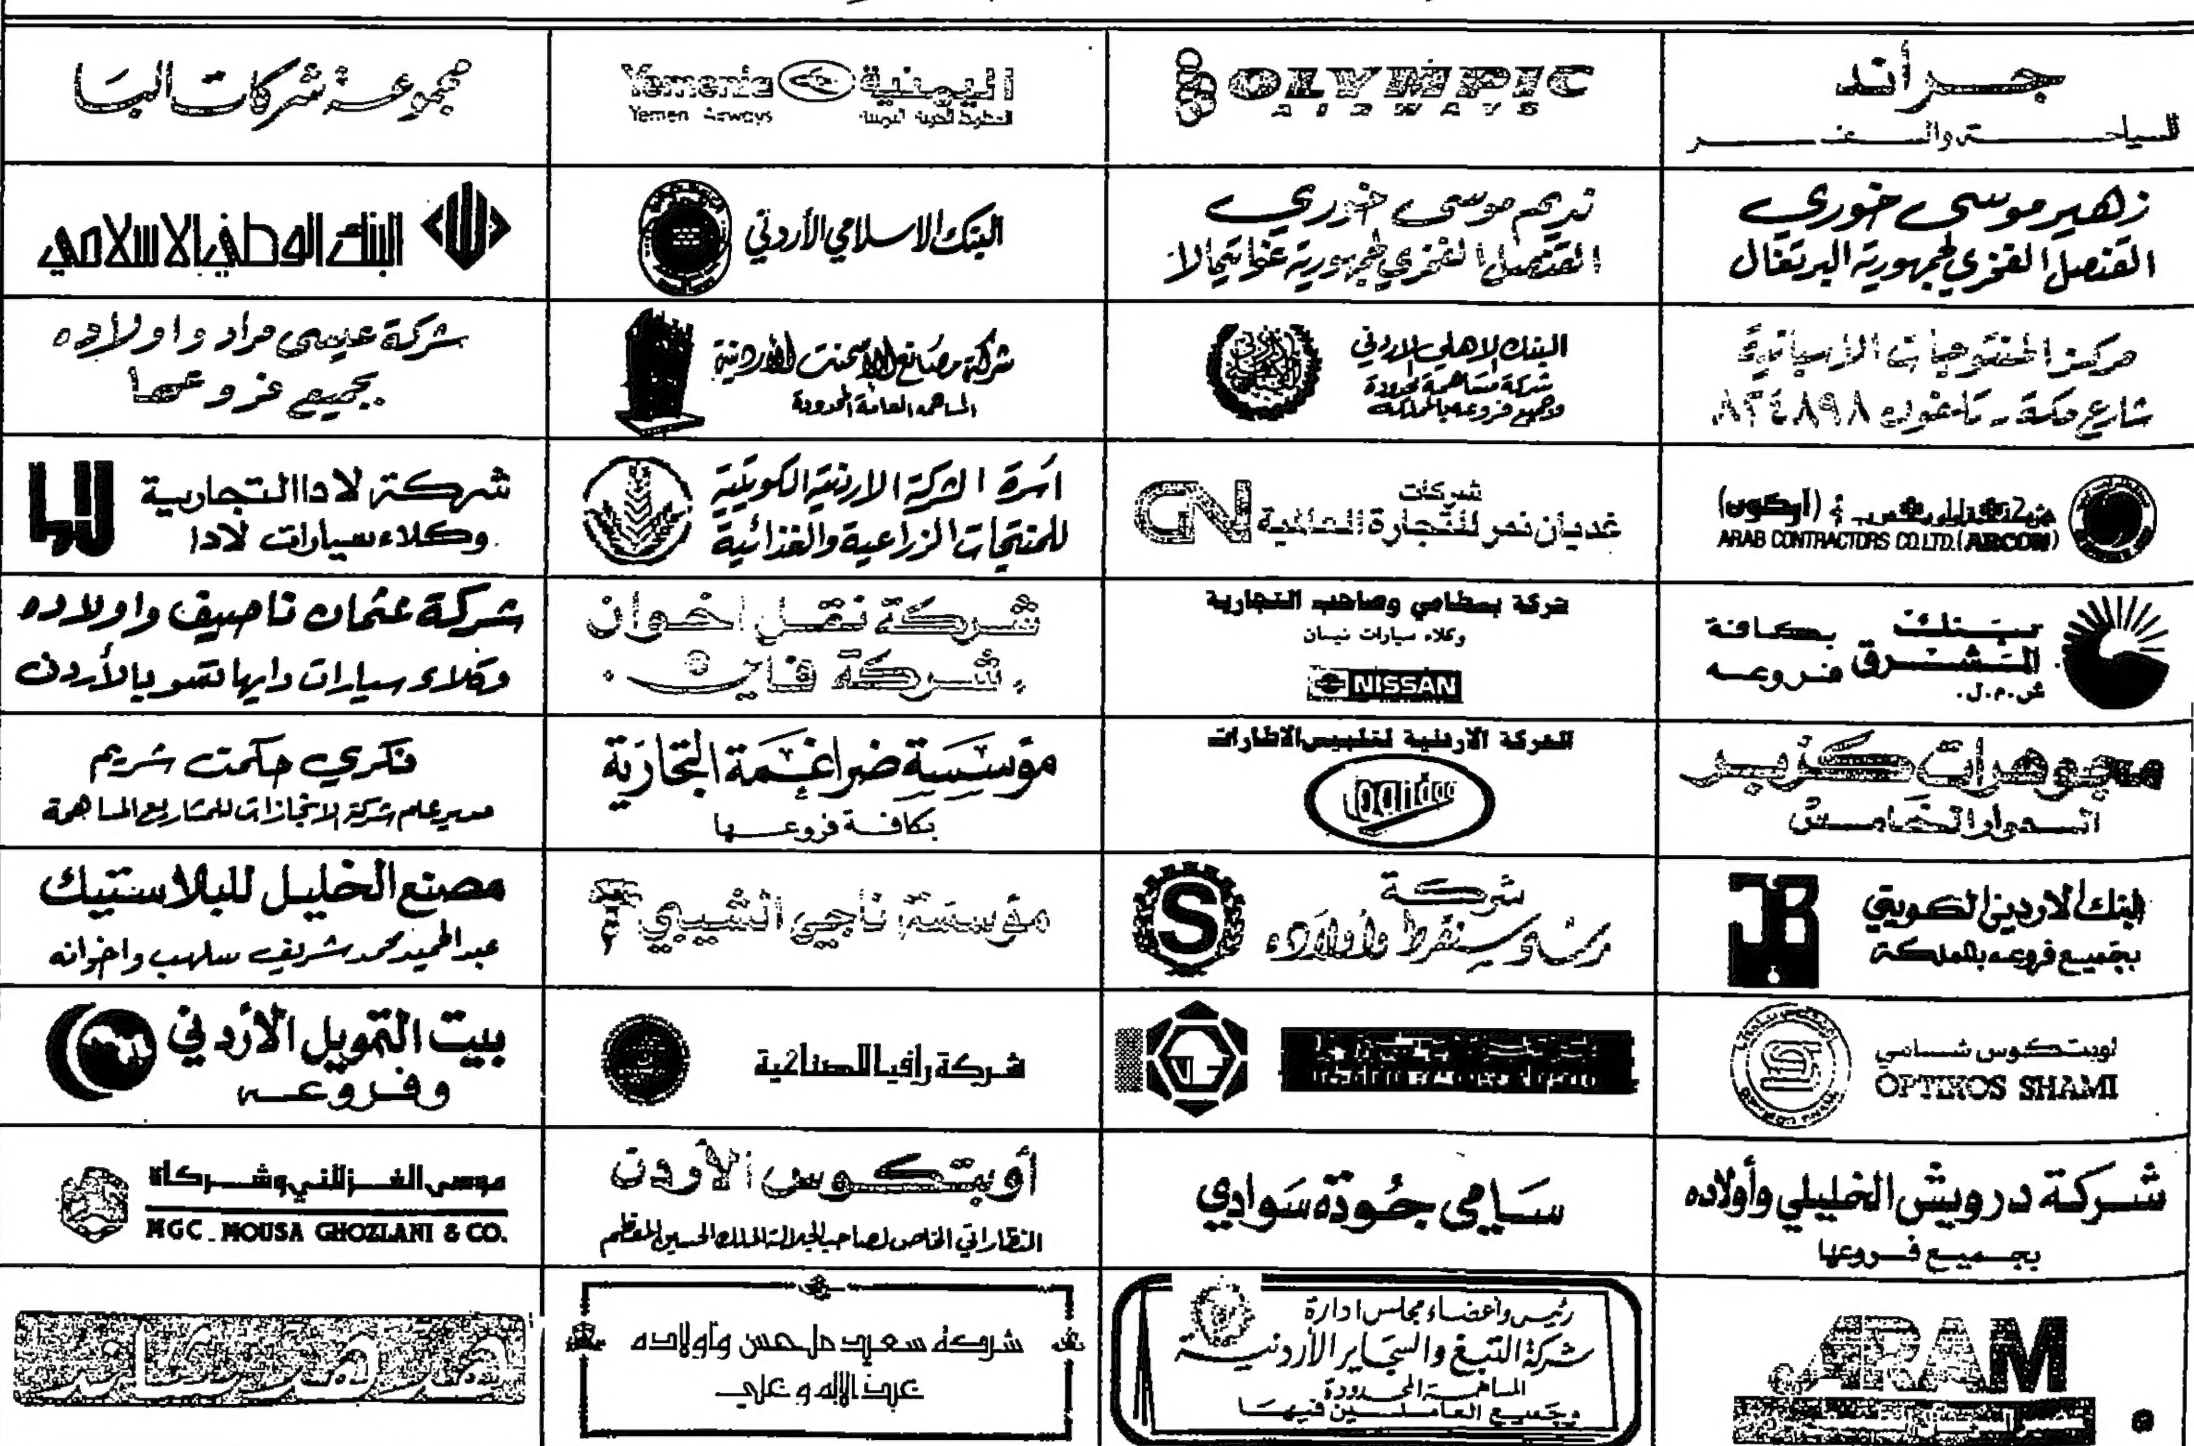 جراند
للسياحة والسفر
OLYMPIC
AIRWAYS
Yemenia اليمنية
Yemen Airways
الخطوط الجوية اليمنية
مجموعة شركات البتا
زهير موسى خوري
القنصل الفخري لجمهورية البرتغال
نديم موسى خوري
القنصل الفخري لجمهورية غواتيمالا
البنك الاسلامي الأردني
البنك الوطني الاسلامي
مركز المنتوجات الاسبانية
شارع مكة - تلفون ٨٢٤٨٩٨
البنك الاهلي الاردني
شركة مساهمة محدودة
وجميع فروعه بالمملكة
شركة مصانع الأسمنت الأردنية
المساهمة العامة المحدودة
شركة عيسى مراد واولاده
بجميع فروعها
(آركون)
ARAB CONTRACTORS CO.LTD.(ARCON)
شركات
غديان نمر للتجارة العالمية
أسرة الشركة الاردنية الكويتية
للمنتجات الزراعية والغذائية
شركة لادا التجارية
وكلاء سيارات لادا
بنك المشرق
ش.م.ل.
بكافة فروعه
شركة بسطامي وصاحب التجارية
وكلاء سيارات نيسان
NISSAN
شركة نقل اخوان
شركة فاين
شركة عثمان ناصيف واولاده
وكلاء سيارات دايهاتسو بالأردن
مجوهرات كزبر
الدوار الخامس
الشركة الاردنية لتلبيس الاطارات
bandag
مؤسسة ضراغمة التجارية
بكافة فروعها
فكري حكمت شريم
مدير عام شركة الانجازات للمشاريع المساهمة
البنك الاردني الكويتي
بجميع فروعه بالمملكة
شركة
وأولاده
S
مؤسسة ناجي الشيبي
مصنع الخليل للبلاستيك
عبد الحميد محمد شريف سلهب واخوانه
اوبتكوس شامي
OPTIKOS SHAMI
شركة رافيا الصناعية
بيت التمويل الأردني
وفروعه
شركة درويش الخليلي وأولاده
بجميع فروعها
سامي جودة سوادي
أوبتكوس الأردن
النظاراتي الخاص لصاحب الجلالة الملك الحسين المعظم
موسى الغزلاني وشركاه
MGC_MOUSA GHOZLANI & CO.
ARAM
رئيس وأعضاء مجلس ادارة
شركة التبغ والسجاير الأردنية
المساهمة المحدودة
وجميع العاملين فيها
شركة سعيد ملحس واولاده
عبد الاله وعلي